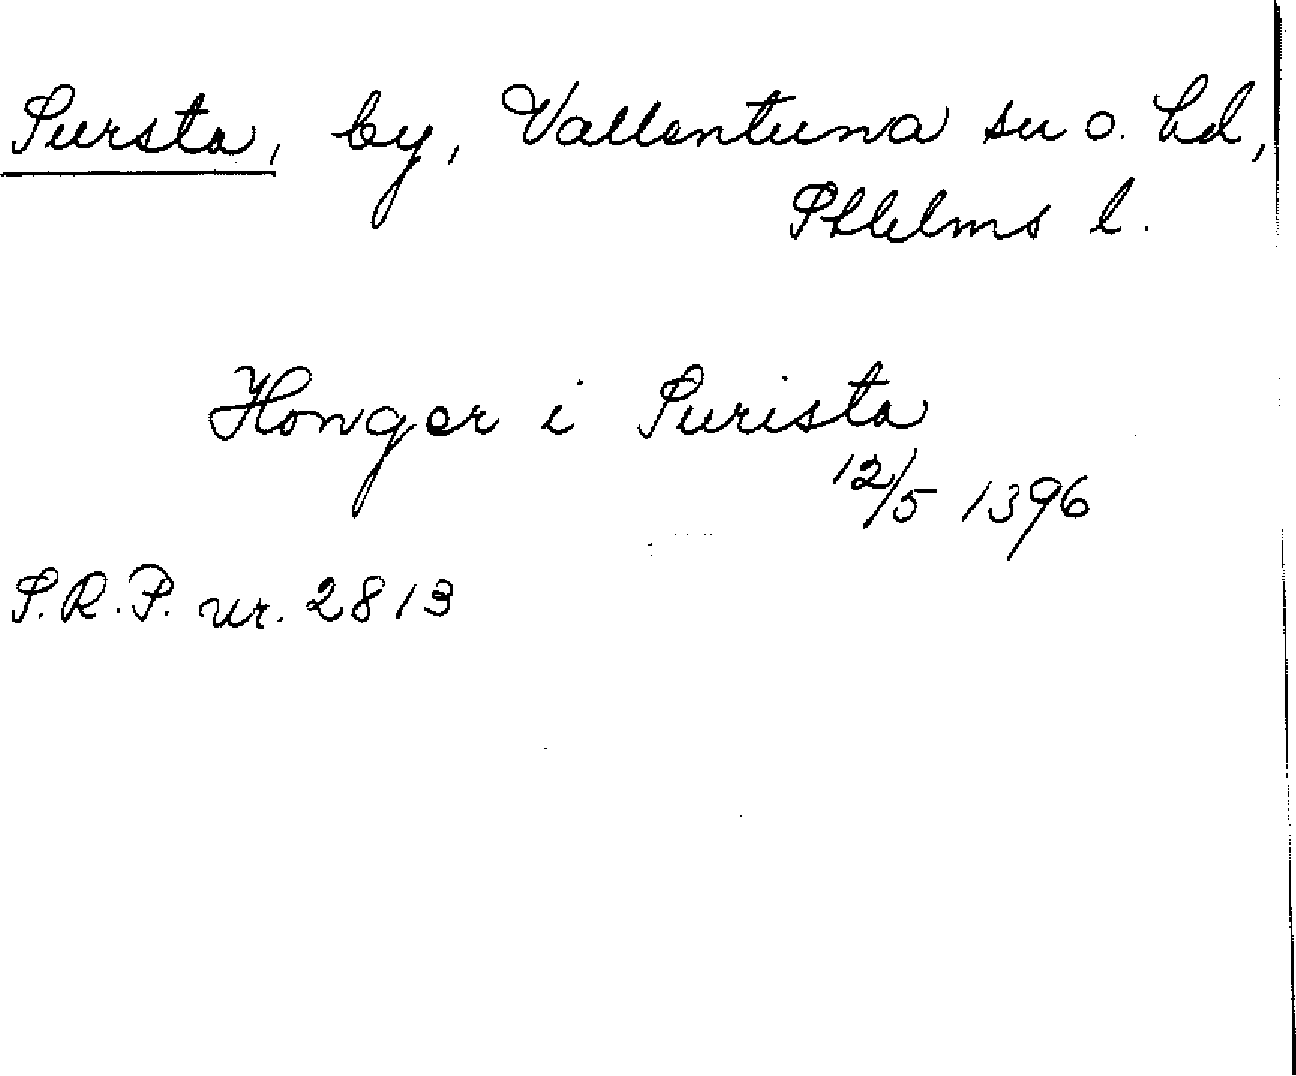 Sursta, by, Vallentuna sn o. hd,
Sthlms l.
Honger i Surista
12/5 1396
S.R.P. nr. 2813